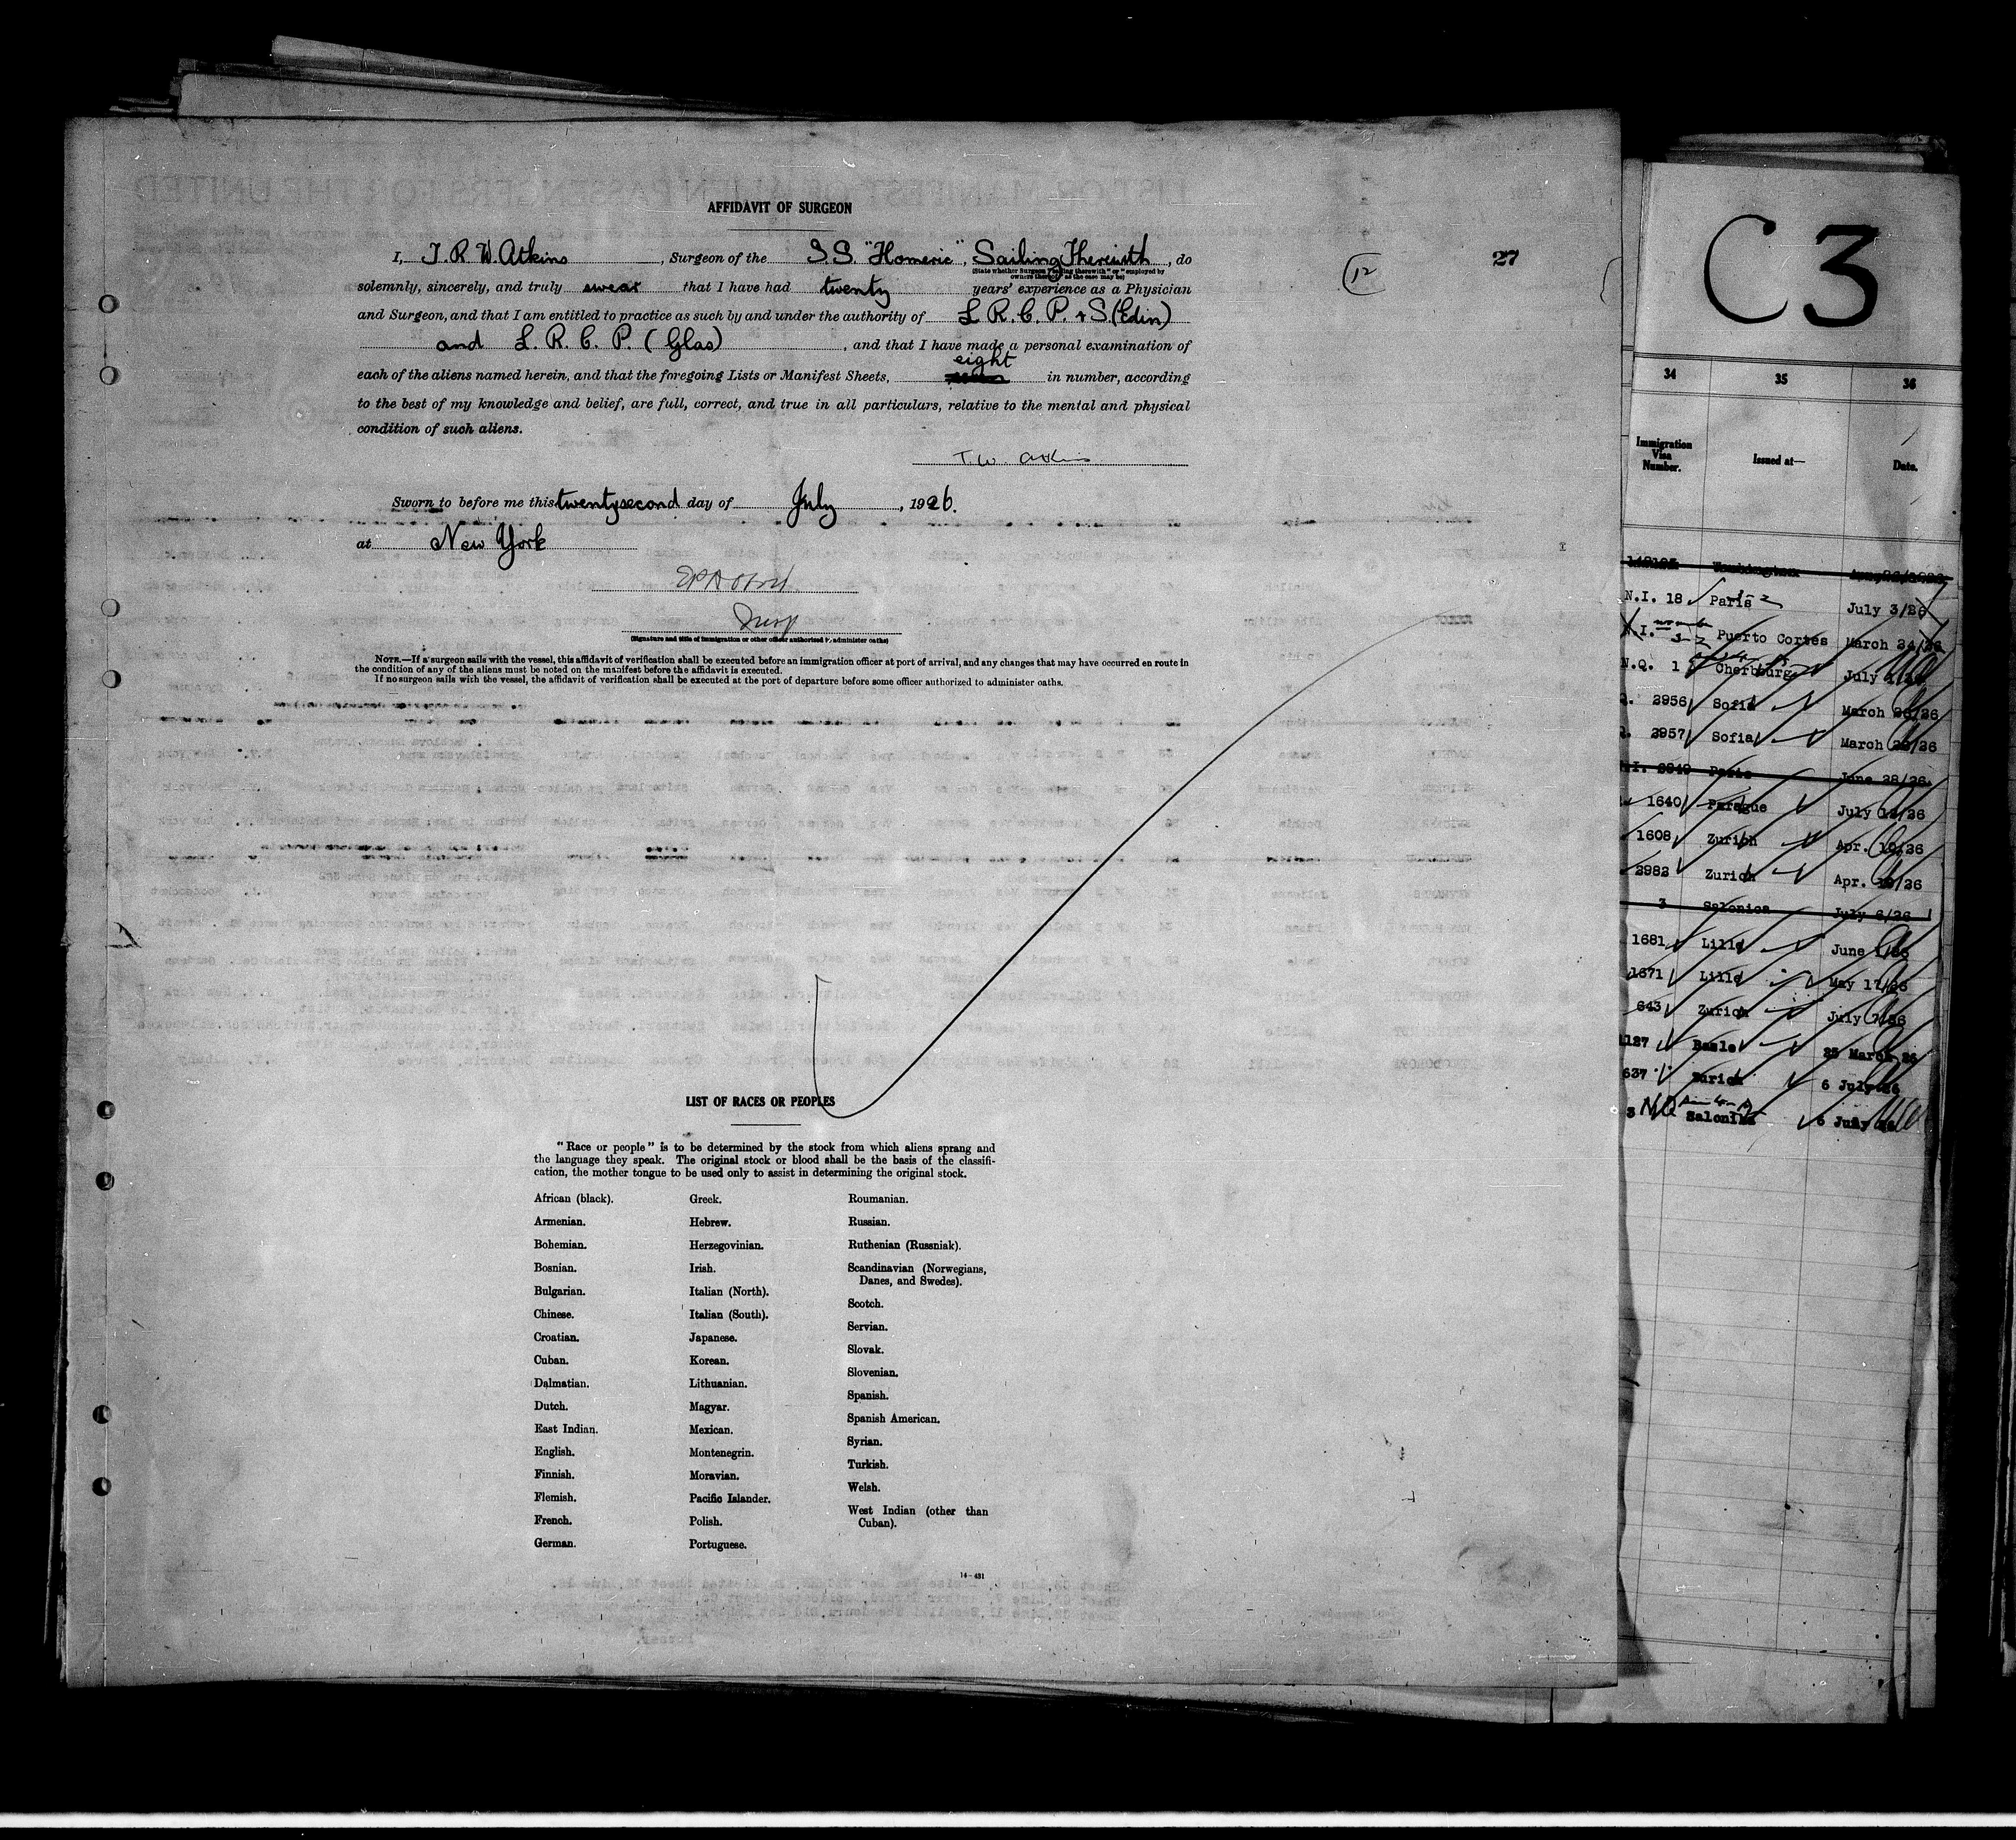 AFFIDAVIT OF SURGEON
I, J. R. W. Atkins, Surgeon of the S.S. "Homeric", Sailing Therewith, do
(State whether Surgeon "sailing therewith" or "employed by
owners thereof" as the case may be)
solemnly, sincerely, and truly swear that I have had twenty years' experience as a Physician
and Surgeon, and that I am entitled to practice as such by and under the authority of L. R. C. P. & S. (Edin)
and L. R. C. P. (Glas), and that I have made a personal examination of
eight
each of the aliens named herein, and that the foregoing Lists or Manifest Sheets, in number, according
to the best of my knowledge and belief, are full, correct, and true in all particulars, relative to the mental and physical
condition of such aliens.
T. W. Atkins
Sworn to before me this twentysecond day of July, 1926.
at New York
Insp
(Signature and title of immigration or other officer authorized to administer oaths)
NOTE.—If a surgeon sails with the vessel, this affidavit of verification shall be executed before an immigration officer at port of arrival, and any changes that may have occurred en route in
the condition of any of the aliens must be noted on the manifest before the affidavit is executed.
If no surgeon sails with the vessel, the affidavit of verification shall be executed at the port of departure before some officer authorized to administer oaths.
12
27
LIST OF RACES OR PEOPLES
"Race or people" is to be determined by the stock from which aliens sprang and
the language they speak. The original stock or blood shall be the basis of the classifi-
cation, the mother tongue to be used only to assist in determining the original stock.
African (black).
Armenian.
Bohemian.
Bosnian.
Bulgarian.
Chinese.
Croatian.
Cuban.
Dalmatian.
Dutch.
East Indian.
English.
Finnish.
Flemish.
French.
German.
Greek.
Hebrew.
Herzegovinian.
Irish.
Italian (North).
Italian (South).
Japanese.
Korean.
Lithuanian.
Magyar.
Mexican.
Montenegrin.
Moravian.
Pacific Islander.
Polish.
Portuguese.
Roumanian.
Russian.
Ruthenian (Russniak).
Scandinavian (Norwegians,
Danes, and Swedes).
Scotch.
Servian.
Slovak.
Slovenian.
Spanish.
Spanish American.
Syrian.
Turkish.
Welsh.
West Indian (other than
Cuban).
14—431
C3
34 35 36
Immigration
Visa
Number.
Issued at—
Date.
Washington
N.I. 18 Paris July 3/26
N.I. Puerto Cortes March 24/26
N.Q. 1 Cherbourg July
2956 Sofia March 26/26
2957 Sofia March 26/26
2849 Paris June 28/26
1640 Parague July 12/26
1608 Zurich Apr. 10/26
2982 Zurich Apr. 10/26
3 Salonica July 6/26
1681 Lille June 1/26
1671 Lille May 17/26
643 Zurich July 7/26
1127 Basle 25 March 26
637 Zurich 6 July 26
3 NQ Salonika 6 July 26